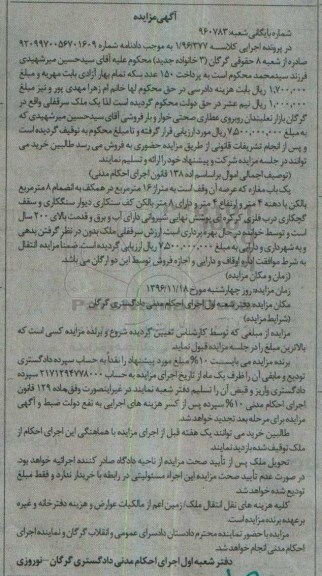 آگهی مزایده
شماره بایگانی شعبه: ۹۶۰۷۸۳
در پرونده اجرایی کلاسه ۱/۹۶/۳۷۷ به موجب دادنامه شماره ۹۲۰۹۹۷۰۰۵۶۷۰۱۶۰۹
صادره از شعبه ۸ حقوقی گرگان (۳ خانواده جدید) محکوم علیه آقای سیدحسین میرشهیدی
فرزند سیدمحمد محکوم است به پرداخت ۱۵۰ عدد سکه تمام بهار آزادی بابت مهریه و مبلغ
۱,۷۰۰,۰۰۰ ریال بابت هزینه دادرسی در حق محکوم لها خانم ام زهرا مهدی پور و نیز مبلغ
۱,۰۰۰,۰۰۰ ریال نیم عشر در حق دولت محکوم گردیده است لذا یک ملک سرقفلی واقع در
گرگان بازار نعلبندان روبروی عطاری صحتی خوار و بار فروشی آقای سیدحسین میرشهیدی که
به مبلغ ۷,۵۰۰,۰۰۰,۰۰۰ ریال مورد ارزیابی قرار گرفته و تا مبلغ محکوم به توقیف گردیده است
و پس از انجام تشریفات قانونی از طریق مزایده حضوری به فروش می رسد طالبین خرید می
توانند در جلسه مزایده شرکت و پیشنهاد خود را ارائه و تسلیم نمایند.
(توصیف اجمالی اموال براساس ماده ۱۳۸ قانون اجرای احکام مدنی)
یک باب مغازه که عرصه آن وقف است به متراژ ۱۶ مترمربع در همکف به انضمام ۸ مترمربع
بالکن با دهنه ۴ متر و ارتفاع ۴ متر و دارای ۸ متر بالکن کف سنگ کاری دیوار سنگکاری و سقف
گچکاری درب فلزی کرکره ای پوشش نهایی شیروانی دارای آب و برق و قدمت بالای ۲۰۰ سال
است و توسط خوانده در حال بهره برداری است ارزش سرقفلی ملک بدون در نظر گرفتن بدهی
و به شهرداری و دارایی به مبلغ ۷,۵۰۰,۰۰۰,۰۰۰ ریال ارزیابی گردیده است ضمنا مزایده انتقال
به شرط موافقت اداره اوقاف و دارایی و اجازه فروش توسط این دو ارگان می باشد.
(زمان و مکان مزایده)
زمان مزایده: روز چهارشنبه مورخ ۱۳۹۶/۱۱/۱۸
مکان مزایده دفتر شعبه اول اجرای احکام مدنی دادگستری گرگان
(شرایط مزایده)
مزایده از مبلغی که توسط کارشناس تعیین گردیده شروع و برنده مزایده کسی است که
بالاترین مبلغ را در جلسه مزایده قبول نماید.
برنده مزایده می بایست ۱۰% مبلغ مورد پیشنهاد را نقدا به حساب سپرده دادگستری
تودیع و مابقی آن را ظرف یک ماه از تاریخ اجرای مزایده به حساب ۲۱۷۱۲۹۴۷۷۸۰۰۰ سپرده
دادگستری واریز و قبض آن را تسلیم دفتر شعبه نمایند در غیراینصورت وفق ماده ۱۲۹ قانون
اجرای احکام مدنی ۱۰% سپرده پس از کسر هزینه های اجرایی به نفع دولت ضبط و آگهی
مزایده برای مرحله بعد تجدید خواهد شد.
طالبین خرید می توانند یک هفته قبل از اجرای مزایده با هماهنگی این اجرای احکام از
ملک توقیف شده بازدید نمایند.
تحویل ملک پس از تأیید صحت مزایده از ناحیه دادگاه صادر کننده اجرائیه خواهد بود.
در صورت عدم تأیید صحت مزایده این اجراء مسئولیتی در رابطه با خریدار ندارد و فقط مبلغ
تودیع شده خواهد شد.
کلیه هزینه های نقل انتقال ملک/زمین اعم از مالکیات عوارض و هزینه دفترخانه و غیره
برعهده برنده مزایده است.
مزایده با حضور نماینده محترم دادستان دادسرای عمومی و انقلاب گرگان و نماینده اجرای
احکام مدنی انجام خواهد شد.
دفتر شعبه اول اجرای احکام مدنی دادگستری گرگان - نوروزی